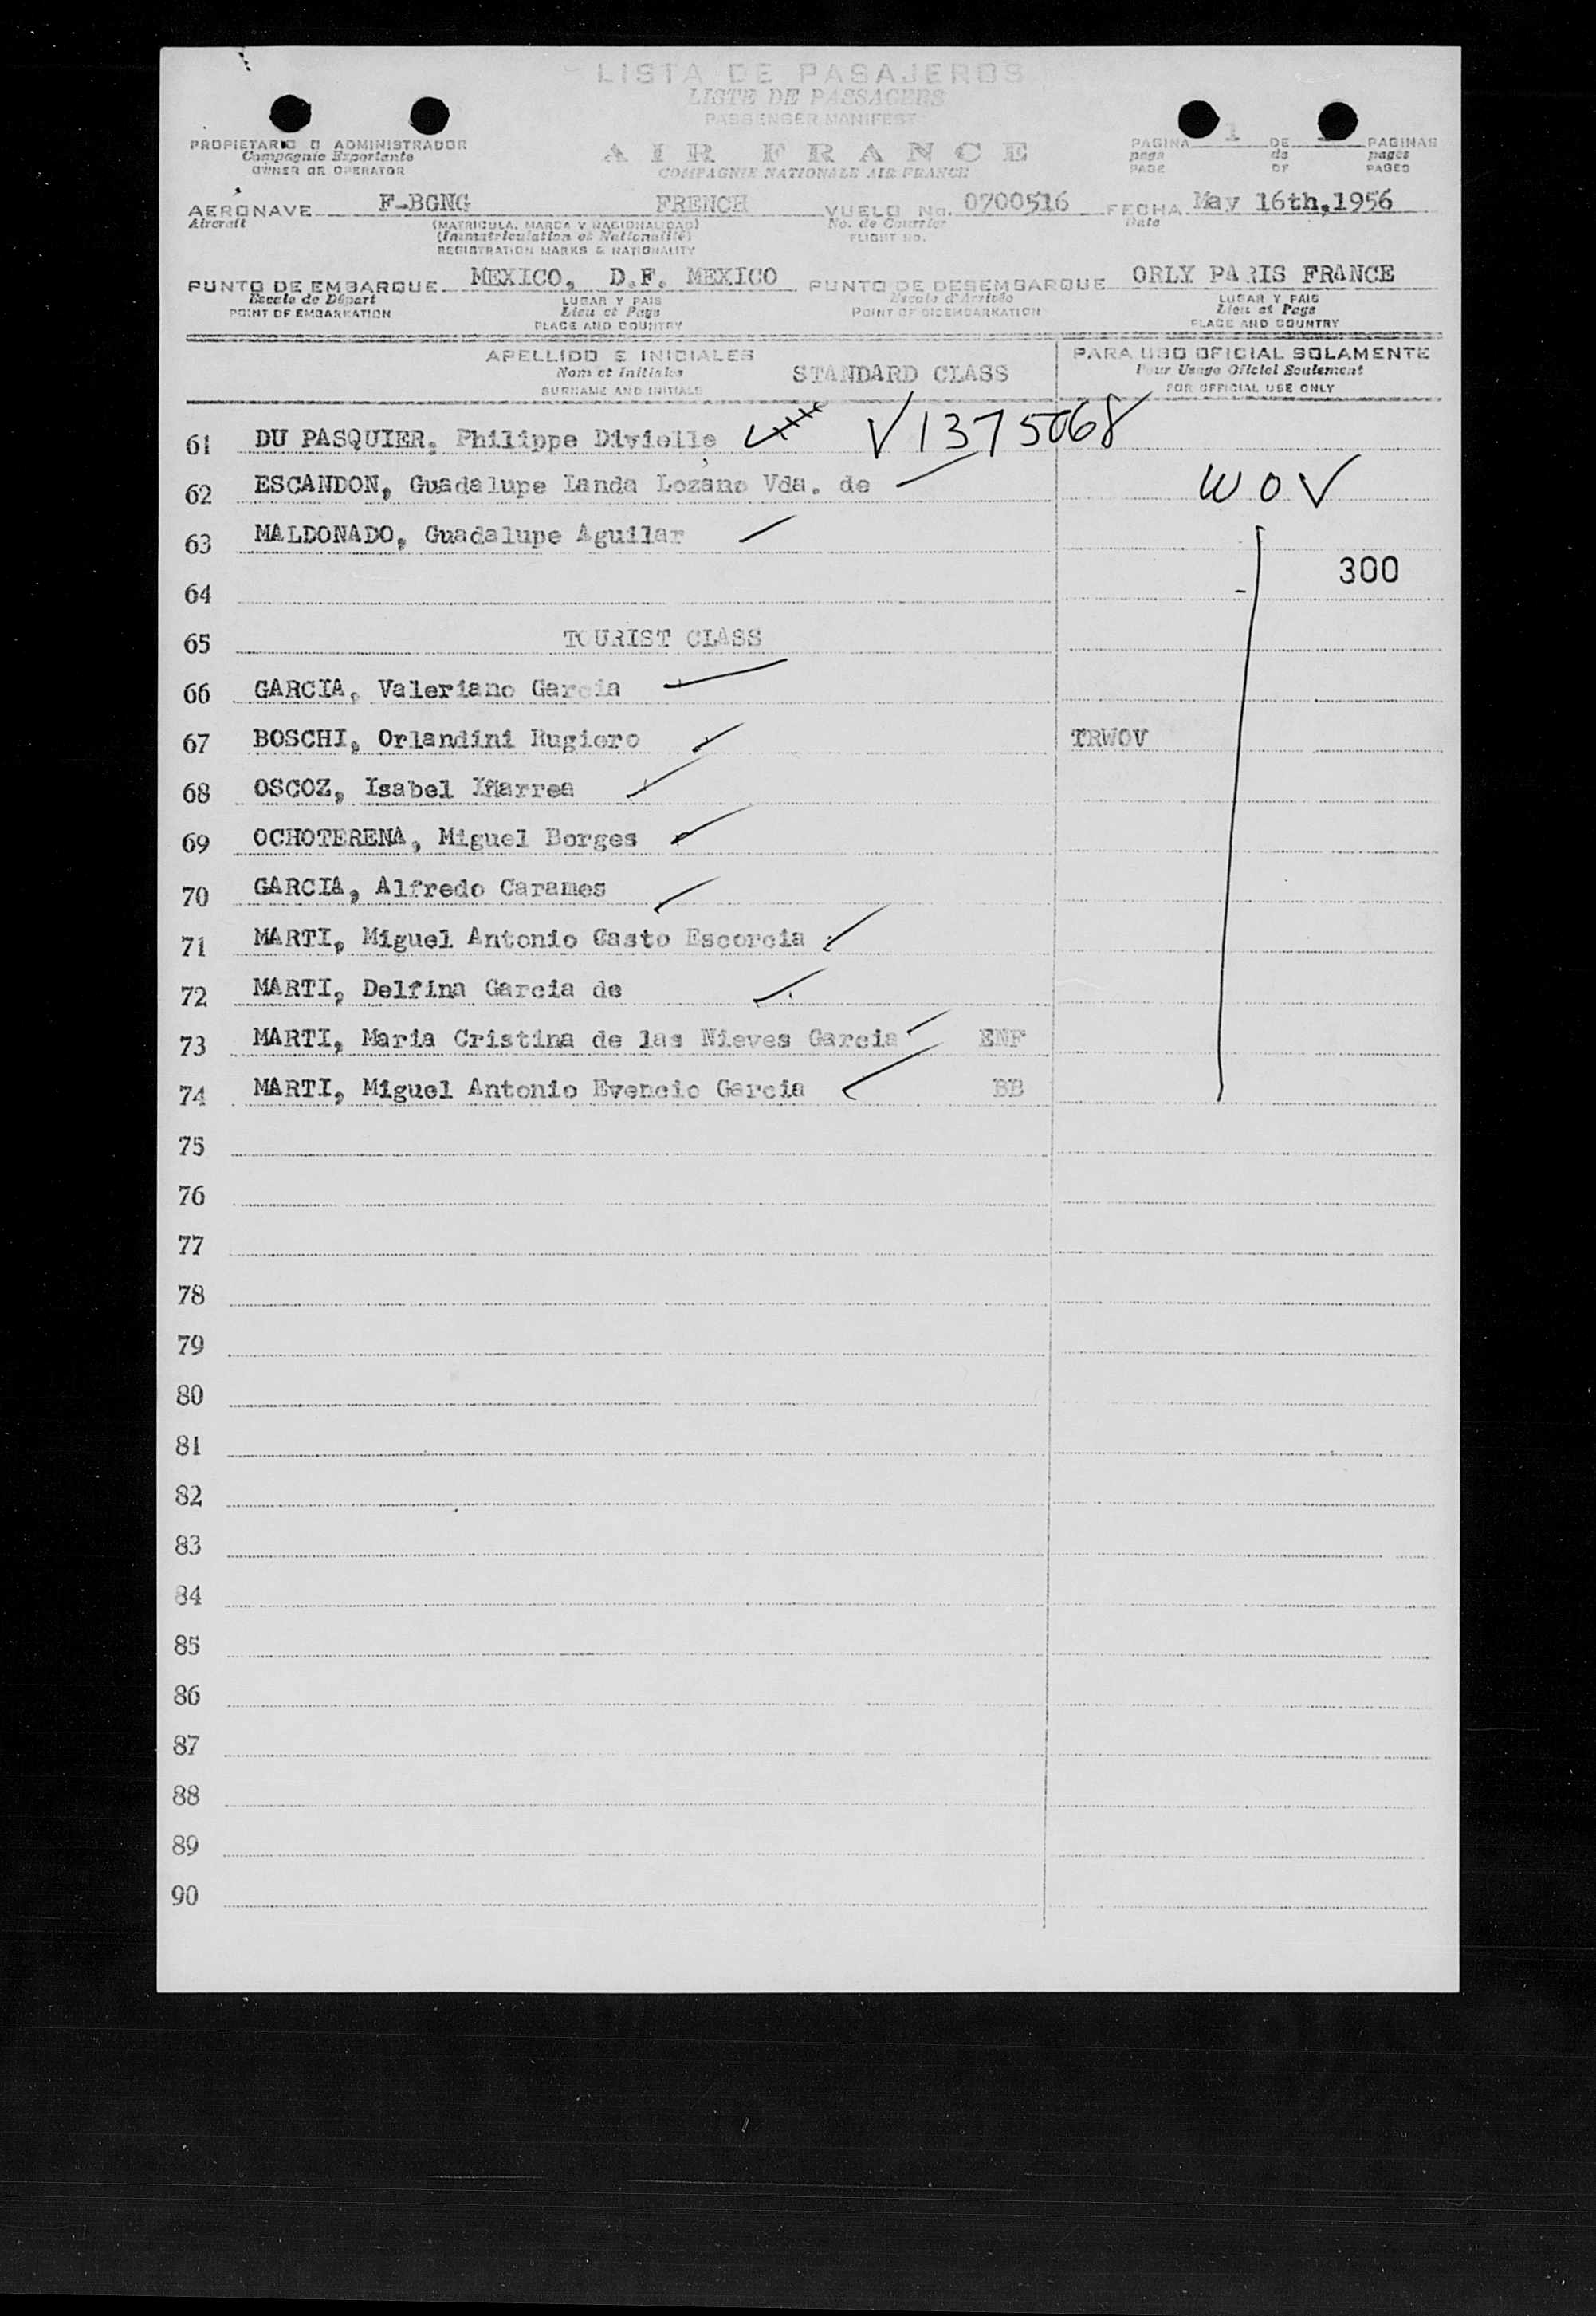 LISTA DE PASAJEROS
LISTE DE PASSAGERS
PASSENGER MANIFEST
PROPIETARIO O ADMINISTRADOR
Compagnie Exportante
OWNER OR OPERATOR
AIR FRANCE
COMPAGNIE NATIONALE AIR FRANCE
PAGINA 1 DE PAGINAS
page de pages
PAGE OF PAGES
AERONAVE F-BGNG FRENCH VUELO No. 0700516 FECHA May 16th,1956
Aircraft (MATRICULA, MARCA Y NACIONALIDAD) No. de Courrier Date
(Immatriculation et Nationalité) FLIGHT NO.
REGISTRATION MARKS & NATIONALITY
PUNTO DE EMBARQUE MEXICO, D.F. MEXICO PUNTO DE DESEMBARQUE ORLY PARIS FRANCE
Escale de Départ LUGAR Y PAIS Escale d'Arrivée LUGAR Y PAIS
POINT OF EMBARKATION Lieu et Pays POINT OF DISEMBARKATION Lieu et Pays
PLACE AND COUNTRY PLACE AND COUNTRY
APELLIDO E INICIALES PARA USO OFICIAL SOLAMENTE
Nom et Initiales STANDARD CLASS Pour Usage Officiel Seulement
SURNAME AND INITIALS FOR OFFICIAL USE ONLY
61 DU PASQUIER, Philippe Divielle V1375068
62 ESCANDON, Guadalupe Landa Lozano Vda. de WOV
63 MALDONADO, Guadalupe Aguilar
64 300
65 TOURIST CLASS
66 GARCIA, Valeriano Garcia
67 BOSCHI, Orlandini Rugiero TRWOV
68 OSCOZ, Isabel Iñarrea
69 OCHOTERENA, Miguel Borges
70 GARCIA, Alfredo Carames
71 MARTI, Miguel Antonio Casto Escorcia
72 MARTI, Delfina Garcia de
73 MARTI, Maria Cristina de las Nieves Garcia ENF
74 MARTI, Miguel Antonio Evencio Garcia BB
75
76
77
78
79
80
81
82
83
84
85
86
87
88
89
90